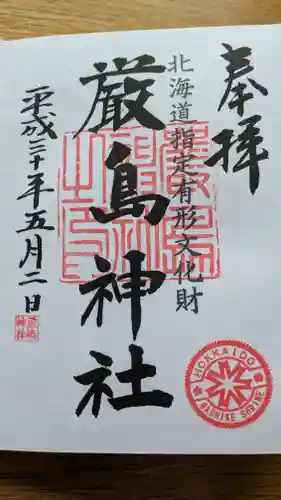 奉拝
北海道指定有形文化財
厳島神社
平成三十年五月二日
HOKKAIDO
MASHIKE SHRINE